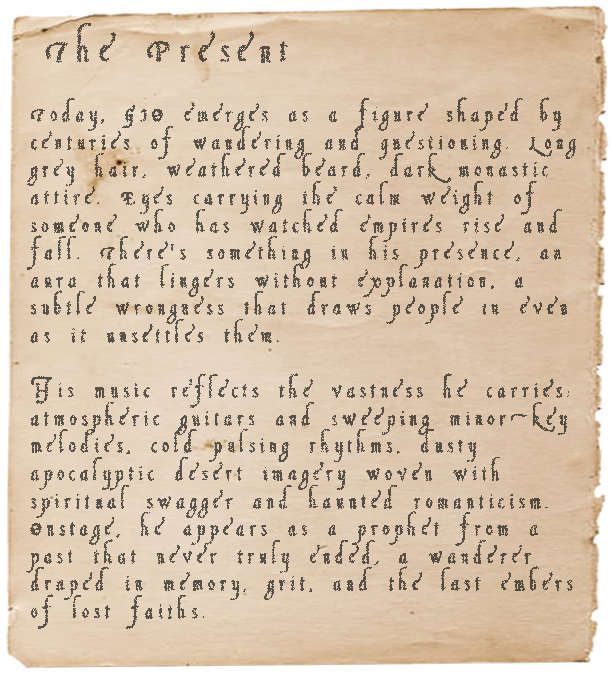 The Present
Today, GJO emerges as a figure shaped by
centuries of wandering and questioning. Long
grey hair, weathered beard, dark monastic
attire. Eyes carrying the calm weight of
someone who has watched empires rise and
fall. There's something in his presence, an
aura that lingers without explanation, a
subtle wrongness that draws people in even
as it unsettles them.
His music reflects the vastness he carries:
atmospheric guitars and sweeping minor-key
melodies, cold pulsing rhythms, dusty
apocalyptic desert imagery woven with
spiritual swagger and haunted romanticism.
Onstage, he appears as a prophet from a
past that never truly ended, a wanderer
draped in memory, grit, and the last embers
of lost faiths.